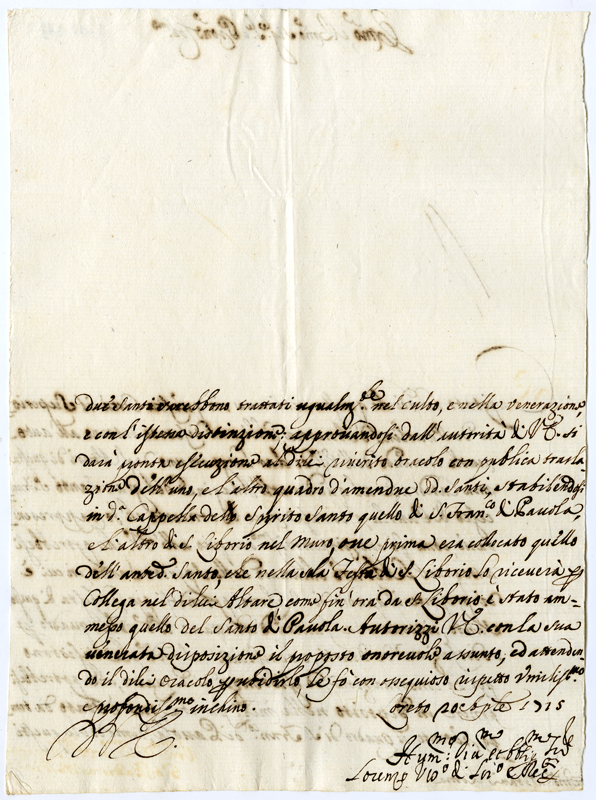 due Santi sarebbono trattati ugualm.te nel culto, e nella venerazione,
e con l'istessa distinzione: approvandosi dall'autorità di V.E. si
darà pronta esecuzione al di lei riverito oracolo con publica trasla
zione dell'uno, e l'altro quadro d'amendue dd. Santi, stabilendosi
in d.a Cappella dello Spirito Santo quello di S. Fran.co di Pavola,
e l'altro di S. Liborio nel Muro, ove prima era collocato quello
dell'anted.o Santo, che nella sua Festa di S. Liborio lo riceverà p
Collega nel di lui Altare come fin'ora da S. Liborio è stato am=
messo quello del Santo di Pavola. Autorizzi V.E. con la sua
venerata disposizione il proposto onorevole assunto, ed attenden
do il di lei oracolo p ubidirlo, le fò con ossequioso rispetto umilis.mo
e profondis.mo inchino. Loreto 20 1715
Di V.E.
Hum.mo Div.mo et Obblig.mo
Lorenzo